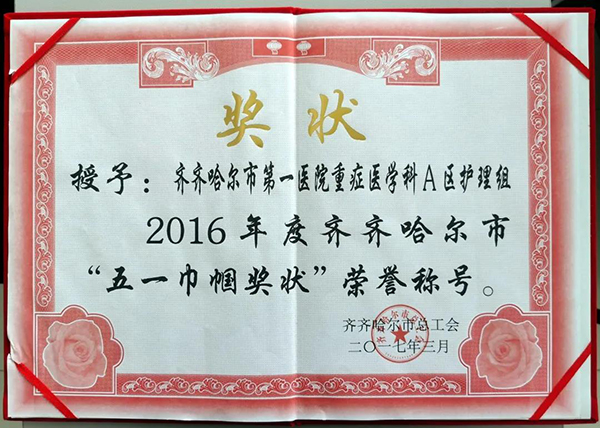 奖状
授予：齐齐哈尔市第一医院重症医学科A区护理组
2016年度齐齐哈尔市
“五一巾帼奖状”荣誉称号。
齐齐哈尔市总工会
二〇一七年三月